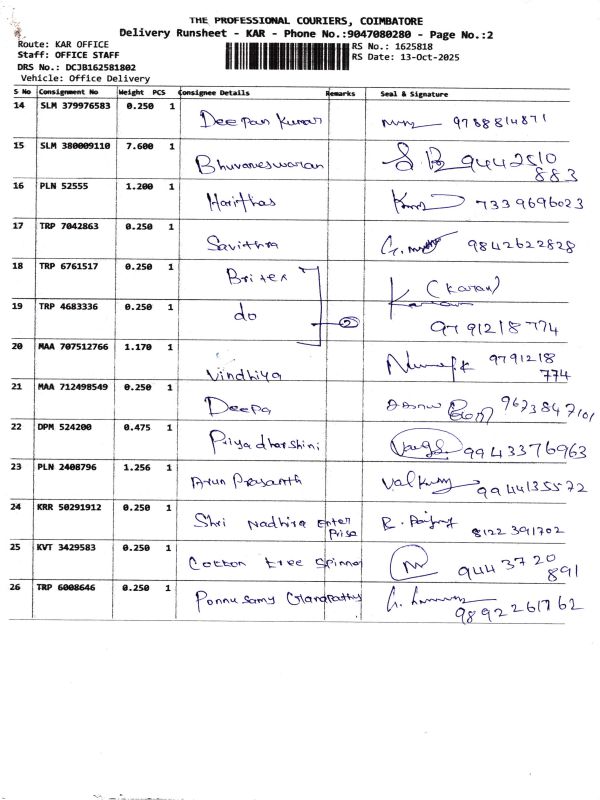 THE PROFESSIONAL COURIERS, COIMBATORE
Delivery Runsheet - KAR - Phone No.:9047080280 - Page No.:2
Route: KAR OFFICE RS No.: 1625818
Staff: OFFICE STAFF RS Date: 13-Oct-2025
DRS No.: DCJB162581802
Vehicle: Office Delivery
S No Consignment No Weight PCS Consignee Details Remarks Seal & Signature
14 SLM 379976583 0.250 1 Deepan Kumar 9788814871
15 SLM 380009110 7.600 1 Bhuvaneswaran 9442510
883
16 PLN 52555 1.200 1 Harithas 7339696023
17 TRP 7042863 0.250 1 Savithra 9842622828
18 TRP 6761517 0.250 1 Britex (Karan)
19 TRP 4683336 0.250 1 do 2
9791218774
20 MAA 707512766 1.170 1 Vindhiya 9791218
774
21 MAA 712498549 0.250 1 Deepa 9673847101
22 DPM 524200 0.475 1 Priyadharshini 9943376963
23 PLN 2408796 1.256 1 Arun Prasanth 9944135572
24 KRR 50291912 0.250 1 Shri Nadhira Enter
Prise 8122391702
25 KVT 3429583 0.250 1 Cotton tree Spinner 9443720
891
26 TRP 6008646 0.250 1 Ponnusamy Ganapathy
9892261762